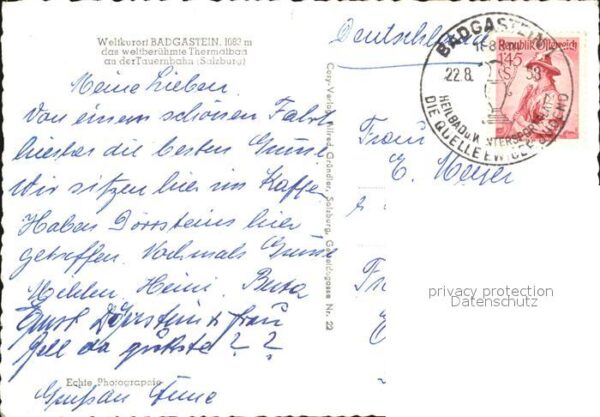 Weltkurort BADGASTEIN, 1083 m
das weltberühmte Thermalbad
an der Tauernbahn (Salzburg)
Meine Lieben.
Von einem schönen Fahrt
hierher die besten Grüsse
Wir sitzen hier im Kaffee
Haben Dörrsteins hier
getroffen. Nochmals Grüsse
Heini.
Ernst Dörrstein & Frau
Gell da guckste? ?
Echte Photographie
Cosy-Verlag Alfred Gründler, Salzburg, Getreidegasse Nr. 22
Deutschland
BADGASTEIN 1
22.8. 58
HEILBAD u. WINTERSPORTPLATZ
DIE QUELLE EWIGER JUGEND
Republik Österreich
1.45
S
Frau
E. Meyer
privacy protection
Datenschutz